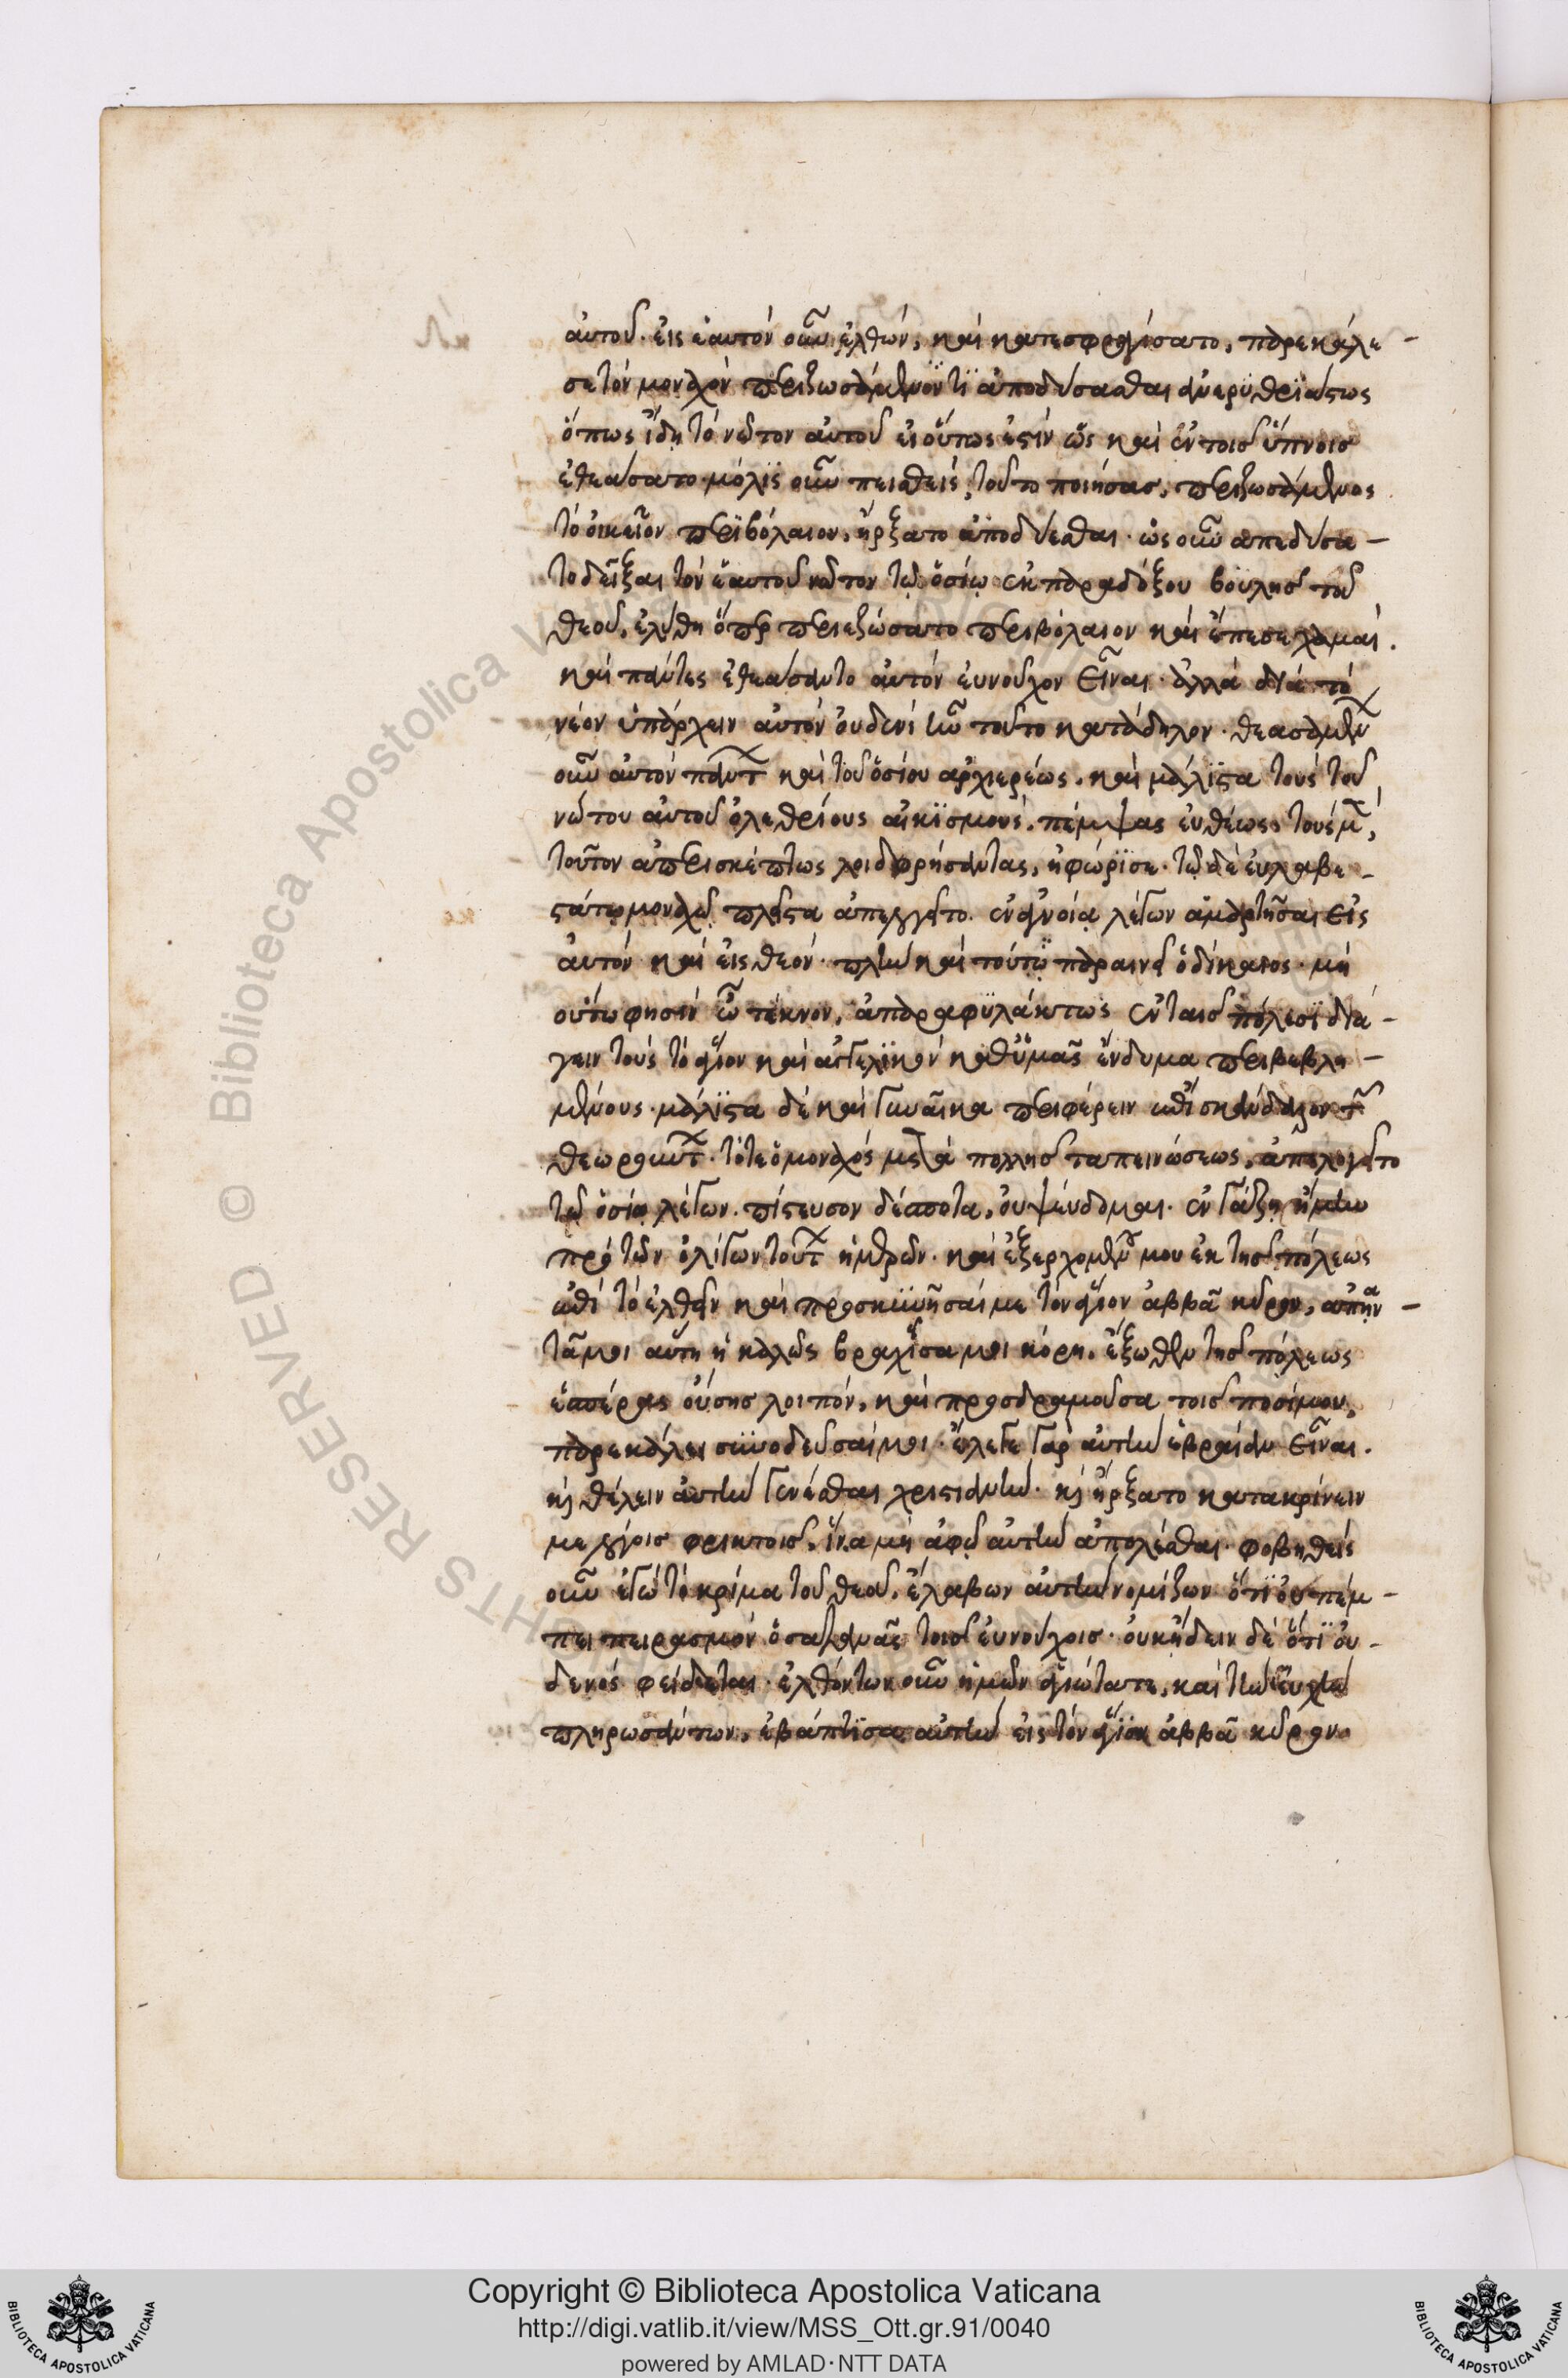 αὐτοῦ. εἰς ἑαυτόν οὖν ἐλθών, καί κατεσφραγίσατο, παρεκάλε-
σε τόν μοναχόν περιζωσάμενόν τϊ ἀποδύσασθαι ἀνερϋθρϊάστως
ὅπως ἴδη τό νῶτον αὐτοῦ εἰ οὕπως ἐστίν ὥς καί ἐν τοῖς ὕπνοισ
ἐθεάσατο. μόλϊς οὖν πεισθείς, τοῦτο ποιήσας, περιζωσάμενος
τό οἰκεῖον περϊβόλαιον, ἤρξατο ἀποδύεσθαι. ὡς οὖν ἀπεδύσα-
το δεῖξαι τόν ἑαυτοῦ νῶτον τῷ ὁσίῳ ἐκ παραδόξου βουλῆσ τοῦ
θεοῦ, ἐλύθη ὅπερ περιεζώσατο περιβόλαιον καί ἔπεσε χαμαί.
καί πάντες ἐθεάσαντο αὐτόν εὐνοῦχον εἶναι. ἀλλά διά τό
νέον ὑπάρχειν αὐτόν οὐδενί ἦν τοῦτο κατάδηλον. θεασαμέν
οὖν αὐτόν πάντ καί τοῦ ὁσίου ἀρχιερέως. καί μάλϊστα τούς τοῦ
νώτου αὐτοῦ ὀλεθρίους αἰκϊσμούς. πέμψας εὐθέως, τούς μ,
τοῦτον ἀπερισκέπτως λοιδορήσαντας, ἠφώρϊσε. τῷ δέ εὐλαβε-
στάτῳ μοναχῷ πλεῖστα ἀπελογεῖτο. ἐν ἀγνοίᾳ λέγων ἁμαρτῆσαι εἰς
αὐτόν καί εἰς θεόν. πλήν καί τούτῳ παραινεῖ ὁ δίκαιος. μή
οὕτω φησίν ὦ τέκνον, ἀπαραφϋλάκτως ἐν ταῖσ πόλεσϊ διά-
γειν τούς τό ἅγιον καί ἀγγελϊκόν καθ' ὑμᾶς ἔνδυμα περιβεβλη-
μένους. μάλϊστα δέ καί γυναῖκα περιφέρειν ἐπί σκάνδαλον τ
θεωρούντ. τότε ὁ μοναχός μετά πολλῆσ ταπεινώσεως, ἀπελογεῖτο
τῷ ὁσίῳ λέγων. πίστευσον δέσποτα, οὐ ψεύδομαι. ἐν γάζῃ ἤμην
πρό τῶν ὀλίγων τούτ ἡμερῶν. καί ἐξερχομέν μου ἐκ τῆσ πόλεως
ἐπί τό ἐλθεῖν καί προσκϋνῆσαί με τόν ἅγιον ἀββᾶ κῦρον, ἀπήν-
τα μοι αὕτη ἡ καλῶς βραχίσα μοι κόρη. ἔξωθεν τῆσ πόλεως
ἑσπέρας οὔσησ λοιπόν, καί προσδραμοῦσα τοῖσ ποσίμου,
παρεκάλει συνοδεῦσαί μοι. ἔλεγε γάρ αὐτήν ἑβραίαν εἶναι.
κ θέλειν αὐτήν γενέσθαι χριστιανήν. κ ἤρξατο κατακρίνειν
με λόγοισ φρικτοῖσ, ἵνα μή ἀφῶ αὐτήν ἀπολέσθαι. φοβηθείς
οὖν ἐγώ τό κρίμα τοῦ θεοῦ, ἔλαβων αὐτήν νομίζων ὅτϊ οὐ πέμ-
πει πειρασμόν ὁ σατανᾶς τοῖσ εὐνούχοισ. οὐκ ᾔδειν δέ ὅτϊ οὐ-
δενός φείδεται. ἐλθόντων οὖν ἡμῶν ἁγιώτατε, καί τήν εὐχήν
πληρωσάντων, ἐβάπτϊσα αὐτήν εἰς τόν ἅγϊον ἀββᾶ κῦρον
Copyright © Biblioteca Apostolica Vaticana
http://digi.vatlib.it/view/MSS_Ott.gr.91/0040
powered by AMLAD·NTT DATA